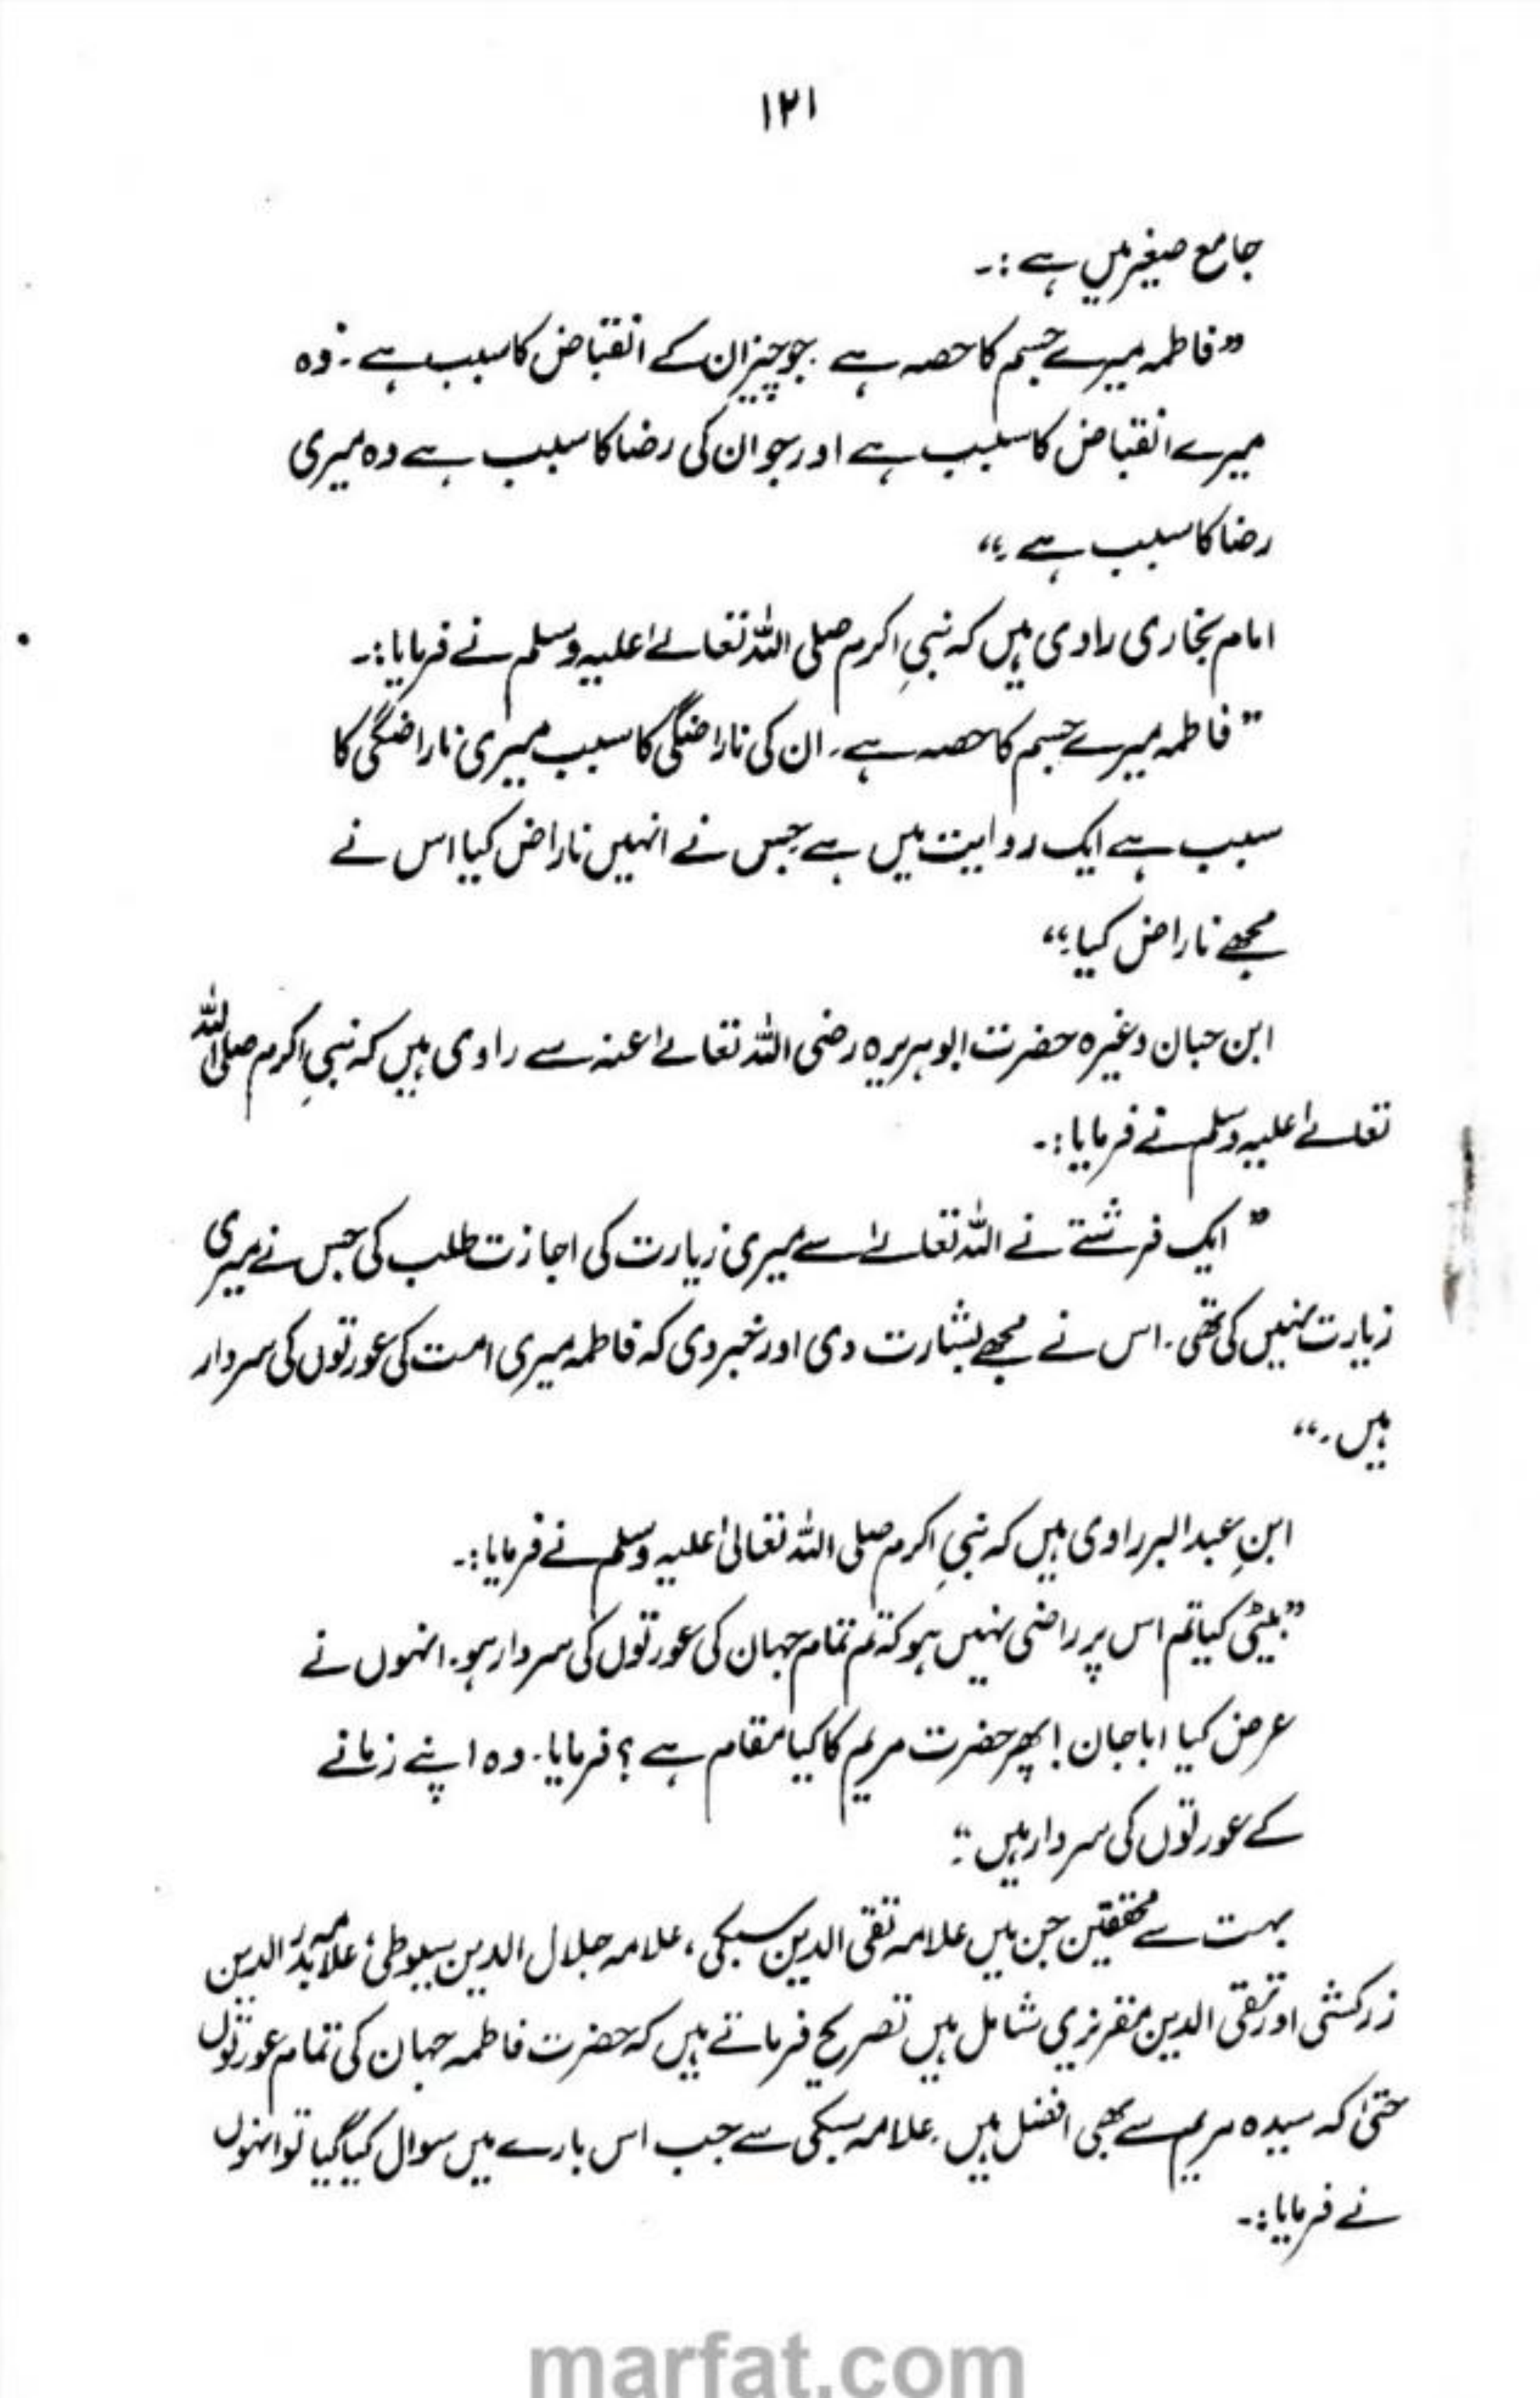 ۱۲۱
جامع صغیر میں ہے :۔
”فاطمہ میرے جسم کا حصہ ہے ۔ جو چیز ان کے انقباض کا سبب ہے ۔ وہ
میرے انقباض کا سبب ہے اور جو ان کی رضا کا سبب ہے وہ میری
رضا کا سبب ہے ۔“
امام بخاری راوی ہیں کہ نبیِ اکرم صلی اللہ تعالےٰ علیہ وسلم نے فرمایا :۔
”فاطمہ میرے جسم کا حصہ ہے ۔ ان کی ناراضگی کا سبب میری ناراضگی کا
سبب ہے ایک روایت میں ہے جس نے انہیں ناراض کیا اس نے
مجھے ناراض کیا ۔“
ابن حبان وغیرہ حضرت ابوہریرہ رضی اللہ تعالےٰ عنہ سے راوی ہیں کہ نبیِ اکرم صلی اللہ
تعالےٰ علیہ وسلم نے فرمایا :۔
”ایک فرشتے نے اللہ تعالےٰ سے میری زیارت کی اجازت طلب کی جس نے میری
زیارت نہیں کی تھی ۔ اس نے مجھے بشارت دی اور خبر دی کہ فاطمہ میری امت کی عورتوں کی سردار
ہیں ۔“
ابنِ عبد البر راوی ہیں کہ نبیِ اکرم صلی اللہ تعالیٰ علیہ وسلم نے فرمایا :۔
”بیٹی کیا تم اس پر راضی نہیں ہو کہ تم تمام جہان کی عورتوں کی سردار ہو ۔ انہوں نے
عرض کیا ابا جان ! پھر حضرت مریم کا کیا مقام ہے ؟ فرمایا ۔ وہ اپنے زمانے
کے عورتوں کی سردار ہیں ۔“
بہت سے محققین جن میں علامہ تقی الدین سبکی ، علامہ جلال الدین سیوطی ، علامہ بدر الدین
زرکشی اور تقی الدین مقریزی شامل ہیں تصریح فرماتے ہیں کہ حضرت فاطمہ جہان کی تمام عورتوں
حتیٰ کہ سیدہ مریم سے بھی افضل ہیں ۔ علامہ سبکی سے جب اس بارے میں سوال کیا گیا تو انہوں
نے فرمایا :۔
marfat.com